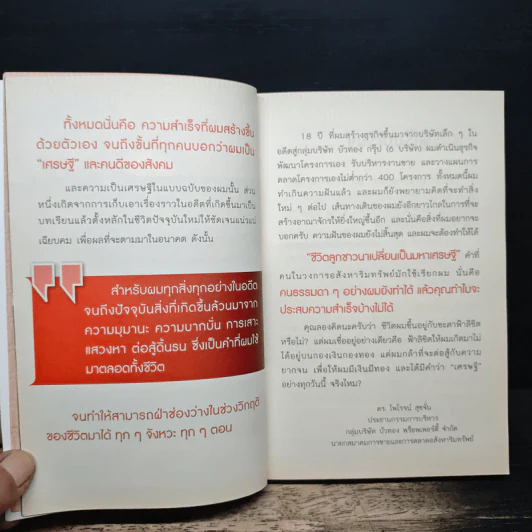 ทั้งหมดนั่นคือ ความสำเร็จที่ผมสร้างขึ้น
ด้วยตัวเอง จนถึงขั้นที่ทุกคนบอกว่าผมเป็น
“เศรษฐี” และคนดีของสังคม
และความเป็นเศรษฐีในแบบฉบับของผมนั้น ส่วน
หนึ่งเกิดจากการเก็บเอาเรื่องราวในอดีตที่เกิดขึ้นมาเป็น
บทเรียนแล้วตั้งหลักในชีวิตปัจจุบันใหม่ให้ชัดเจนแน่วแน่
เฉียบคม เพื่อผลที่จะตามมาในอนาคต ดังนั้น
สำหรับผมทุกสิ่งทุกอย่างในอดีต
จนถึงปัจจุบันสิ่งที่เกิดขึ้นล้วนมาจาก
ความมุมานะ ความบากบั่น การเสาะ
แสวงหา ต่อสู้ดิ้นรน ซึ่งเป็นคำที่ผมใช้
มาตลอดทั้งชีวิต
จนทำให้สามารถฝ่าช่องว่างในช่วงวิกฤติ
ของชีวิตมาได้ ทุก ๆ จังหวะ ทุก ๆ ตอน
18 ปี ที่ผมสร้างธุรกิจขึ้นมาจากบริษัทเล็ก ๆ ใน
อดีตสู่กลุ่มบริษัท บัวทอง กรุ๊ป (6 บริษัท) ผมดำเนินธุรกิจ
พัฒนาโครงการเอง รับบริหารงานขาย และวางแผนการ
ตลาดโครงการเองไม่ต่ำกว่า 400 โครงการ ทั้งหมดนี้ผม
ทำเกินความฝันแล้ว และผมก็ยังพยายามคิดที่จะทำสิ่ง
ใหม่ ๆ ต่อไป เส้นทางเดินของผมยังอีกยาวไกลในการที่จะ
สร้างอาณาจักรให้ยิ่งใหญ่ขึ้นอีก และนั่นคือสิ่งที่ผมอยากจะ
บอกครับ ความฝันของผมยังไม่สิ้นสุด และผมจะต้องทำให้ได้
“ชีวิตลูกชาวนาเปลี่ยนเป็นมหาเศรษฐี” คำที่
คนในวงการอสังหาริมทรัพย์มักใช้เรียกผม นั่นคือ
คนธรรมดา ๆ อย่างผมยังทำได้ แล้วคุณทำไมจะ
ประสบความสำเร็จบ้างไม่ได้
คุณลองคิดนะครับว่า ชีวิตผมขึ้นอยู่กับชะตาฟ้าลิขิต
หรือไม่? แต่ผมเชื่ออยู่อย่างเดียวคือ ฟ้าลิขิตให้ผมเกิดมาไม่
ได้อยู่บนกองเงินกองทอง แต่ผมกล้าที่จะต่อสู้กับความ
ยากจน เพื่อให้ผมมีเงินมีทอง และได้มีคำว่า “เศรษฐี”
อย่างทุกวันนี้ จริงไหม?
ดร. ไพโรจน์ สุขจั่น
ประธานกรรมการบริหาร
กลุ่มบริษัท บัวทอง พร็อพเพอร์ตี้ จำกัด
นายกสมาคมการขายและการตลาดอสังหาริมทรัพย์